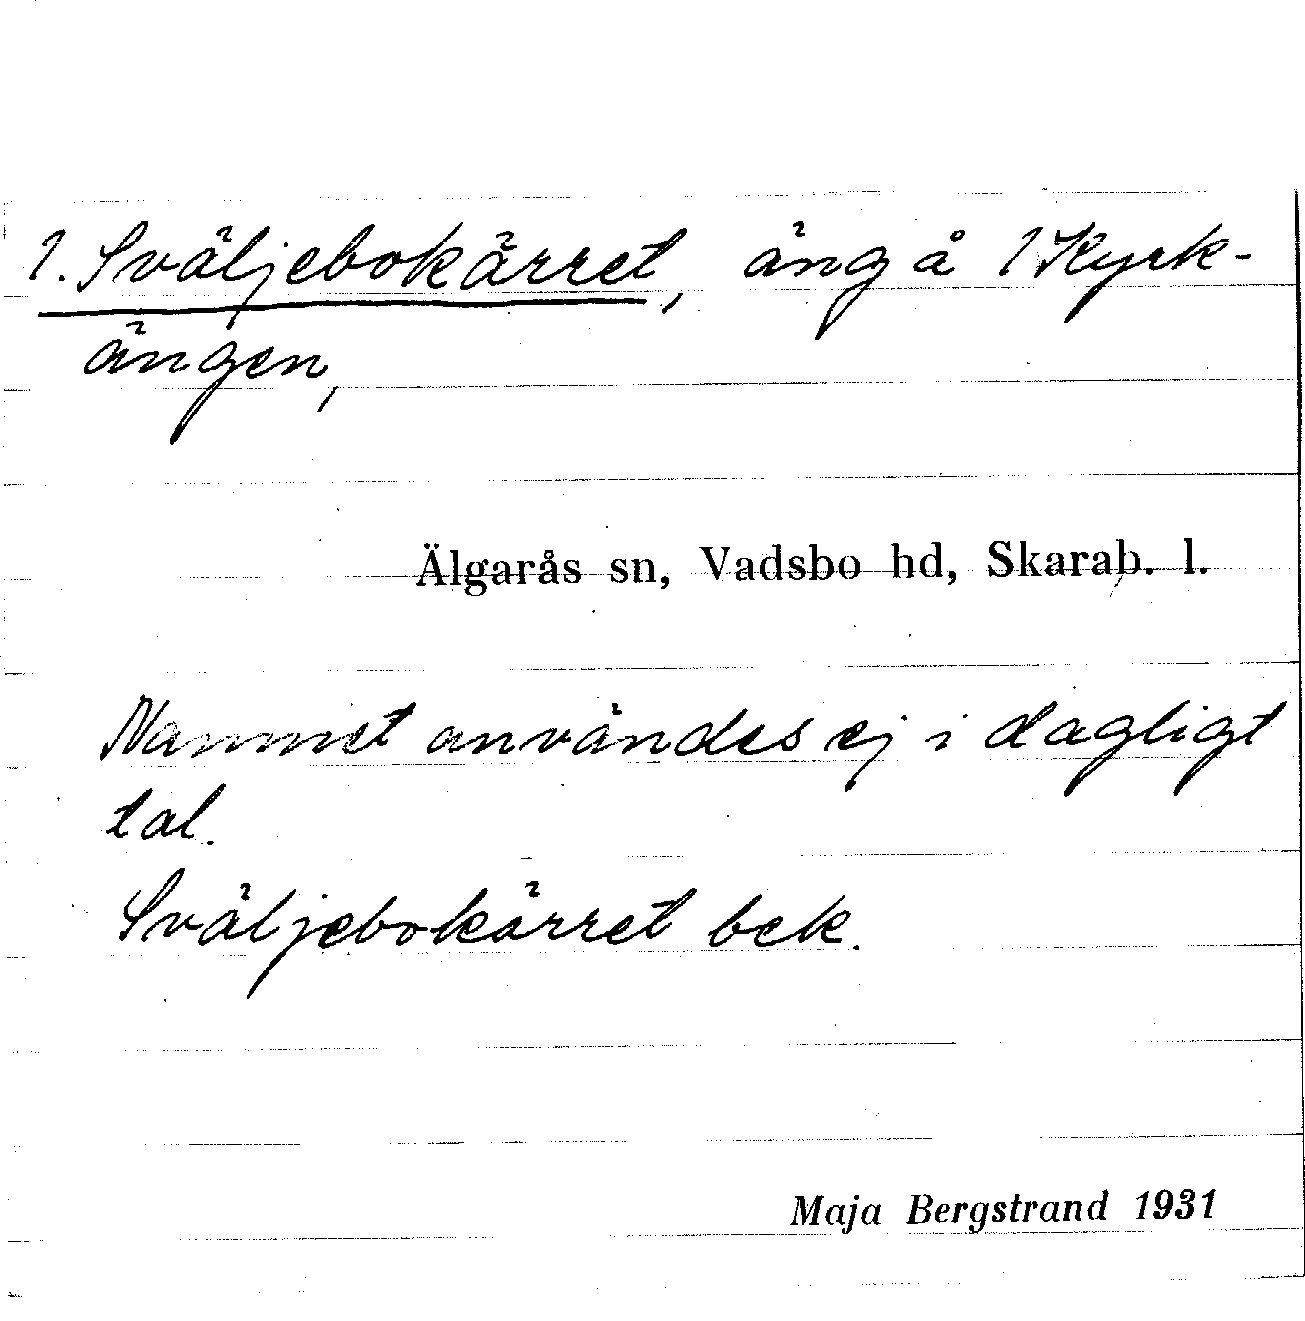 1. Sväljebokärret, äng å 1 Kyrk-
ängen,
Älgarås sn, Vadsbo hd, Skarab. l.
Namnet användes ej i dagligt
tal.
Sväljebokärret bek.
Maja Bergstrand 1931